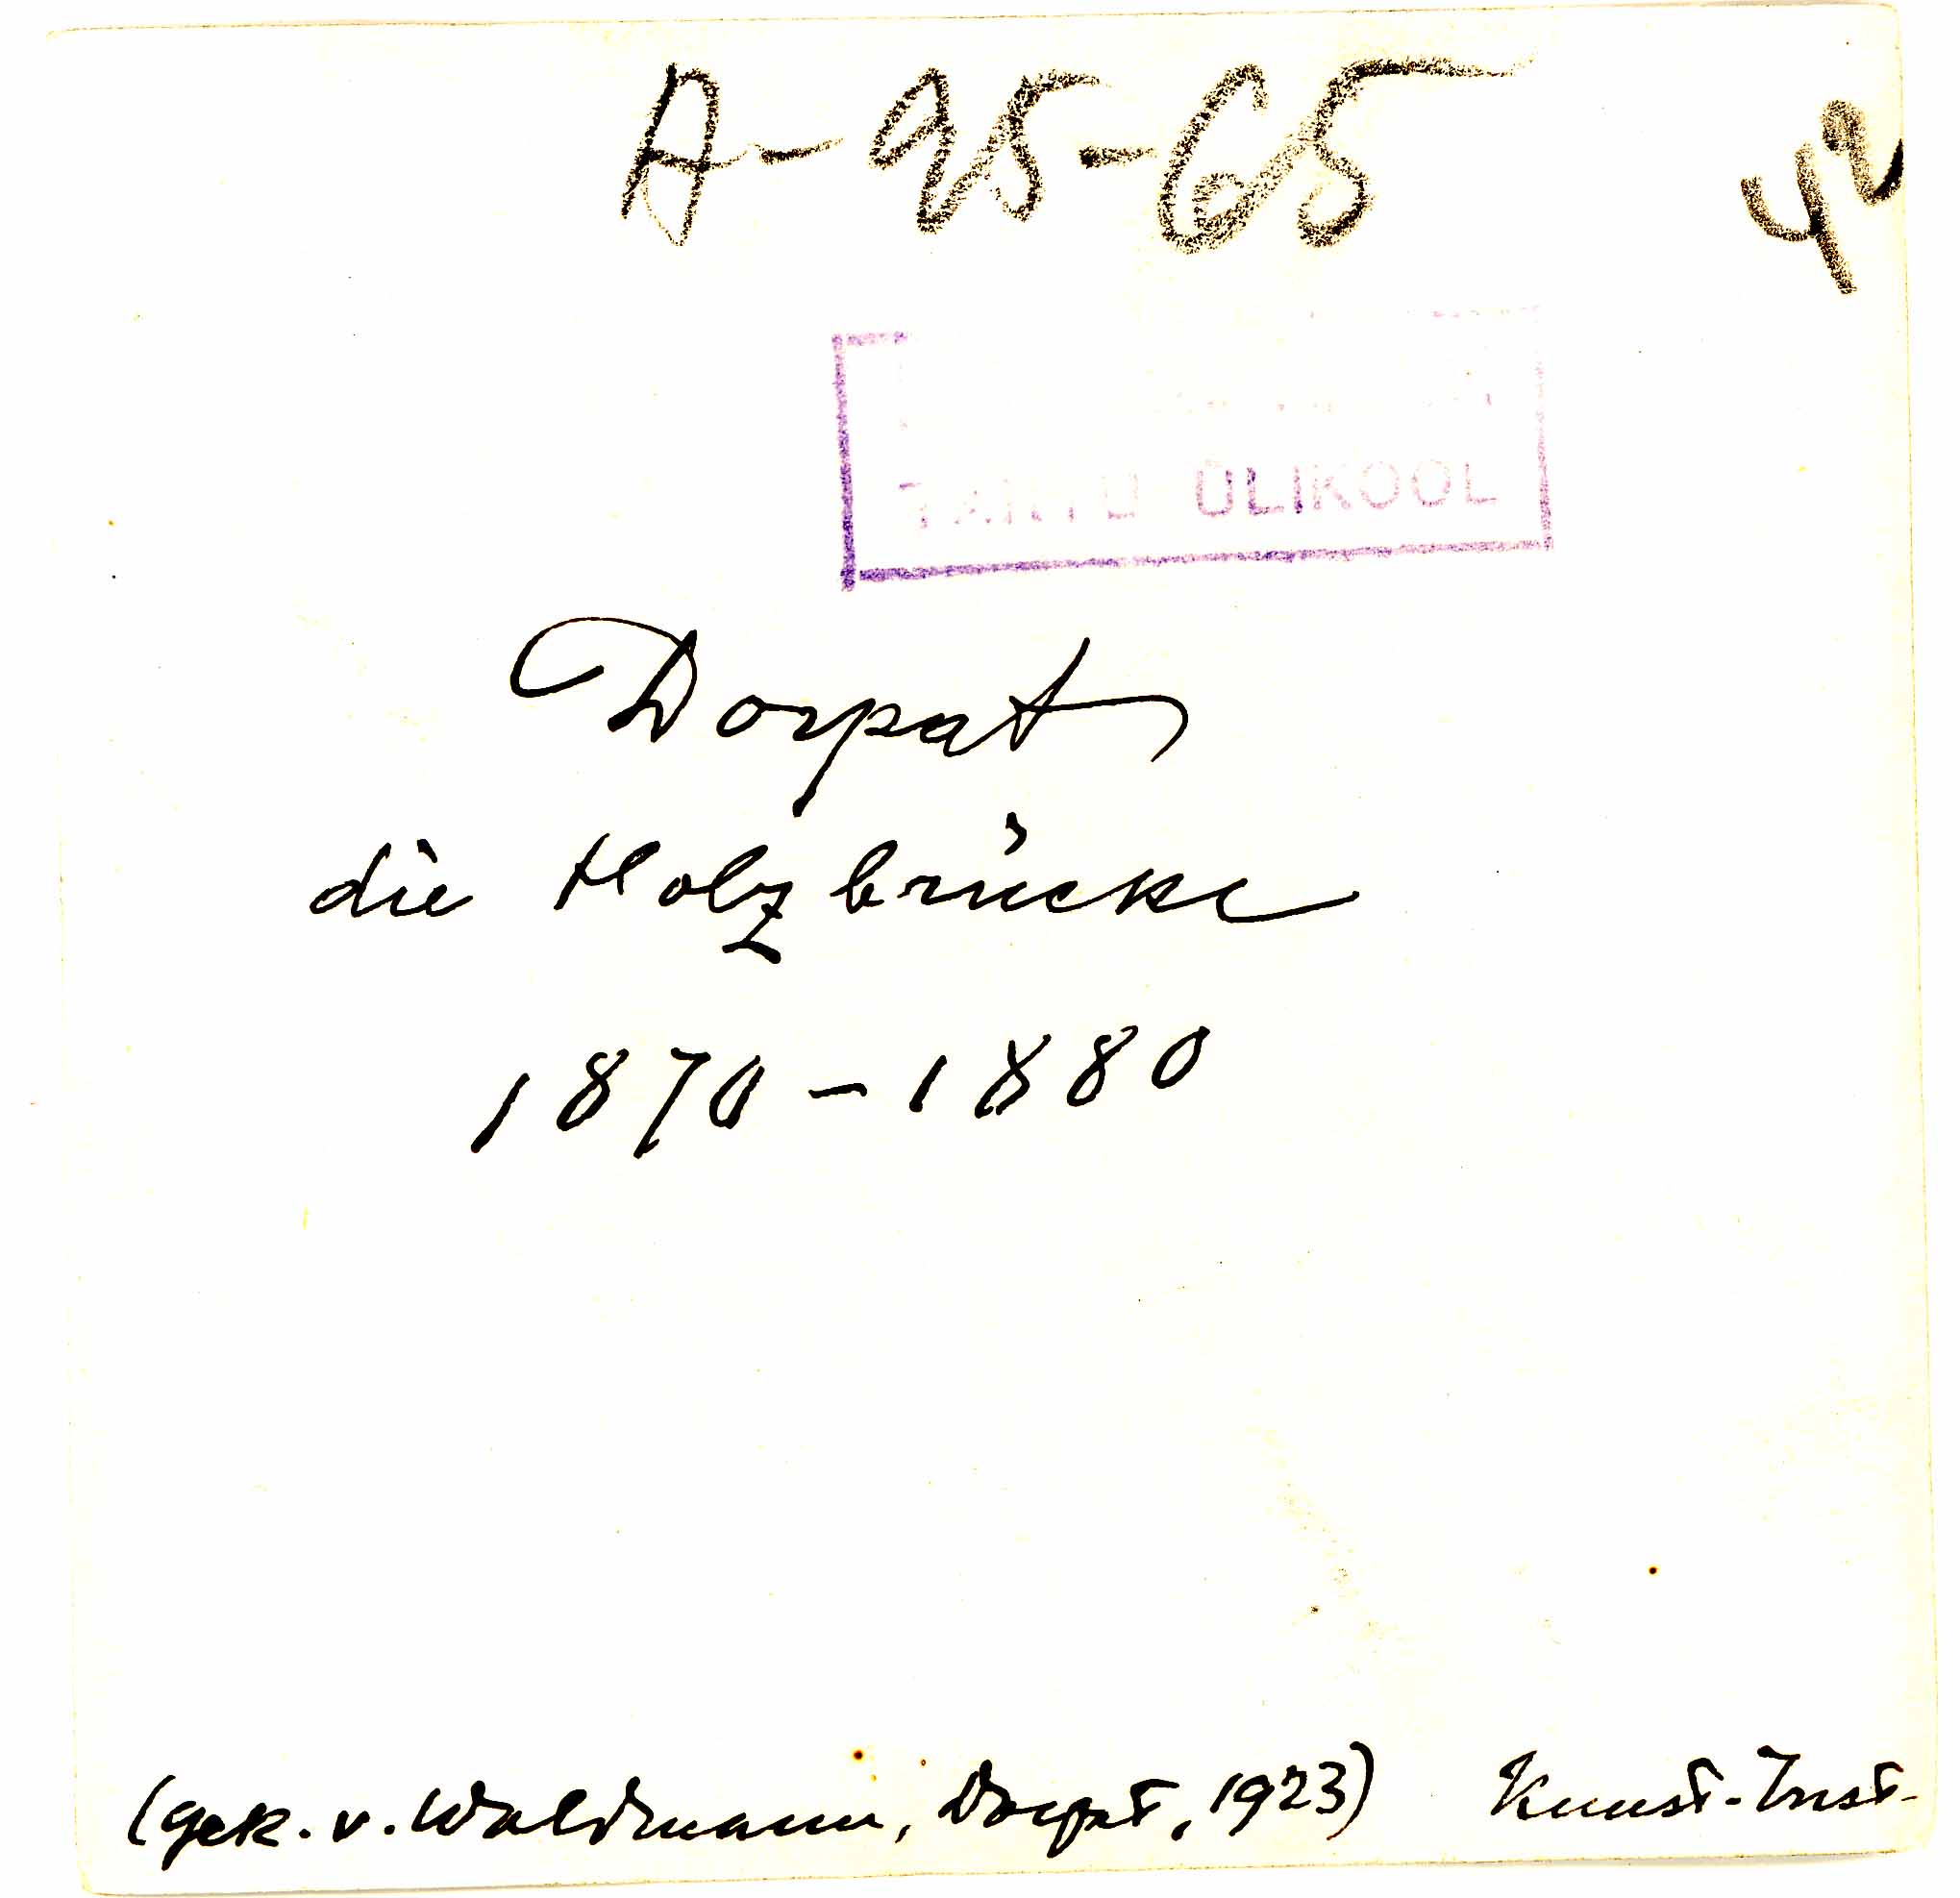 A-95-65
42
TARTU ÜLIKOOL
Dorpat
die Holzbrücke
1870-1880
(gek. v. Waldmann, Dorpat, 1923) Kunst-Inst-